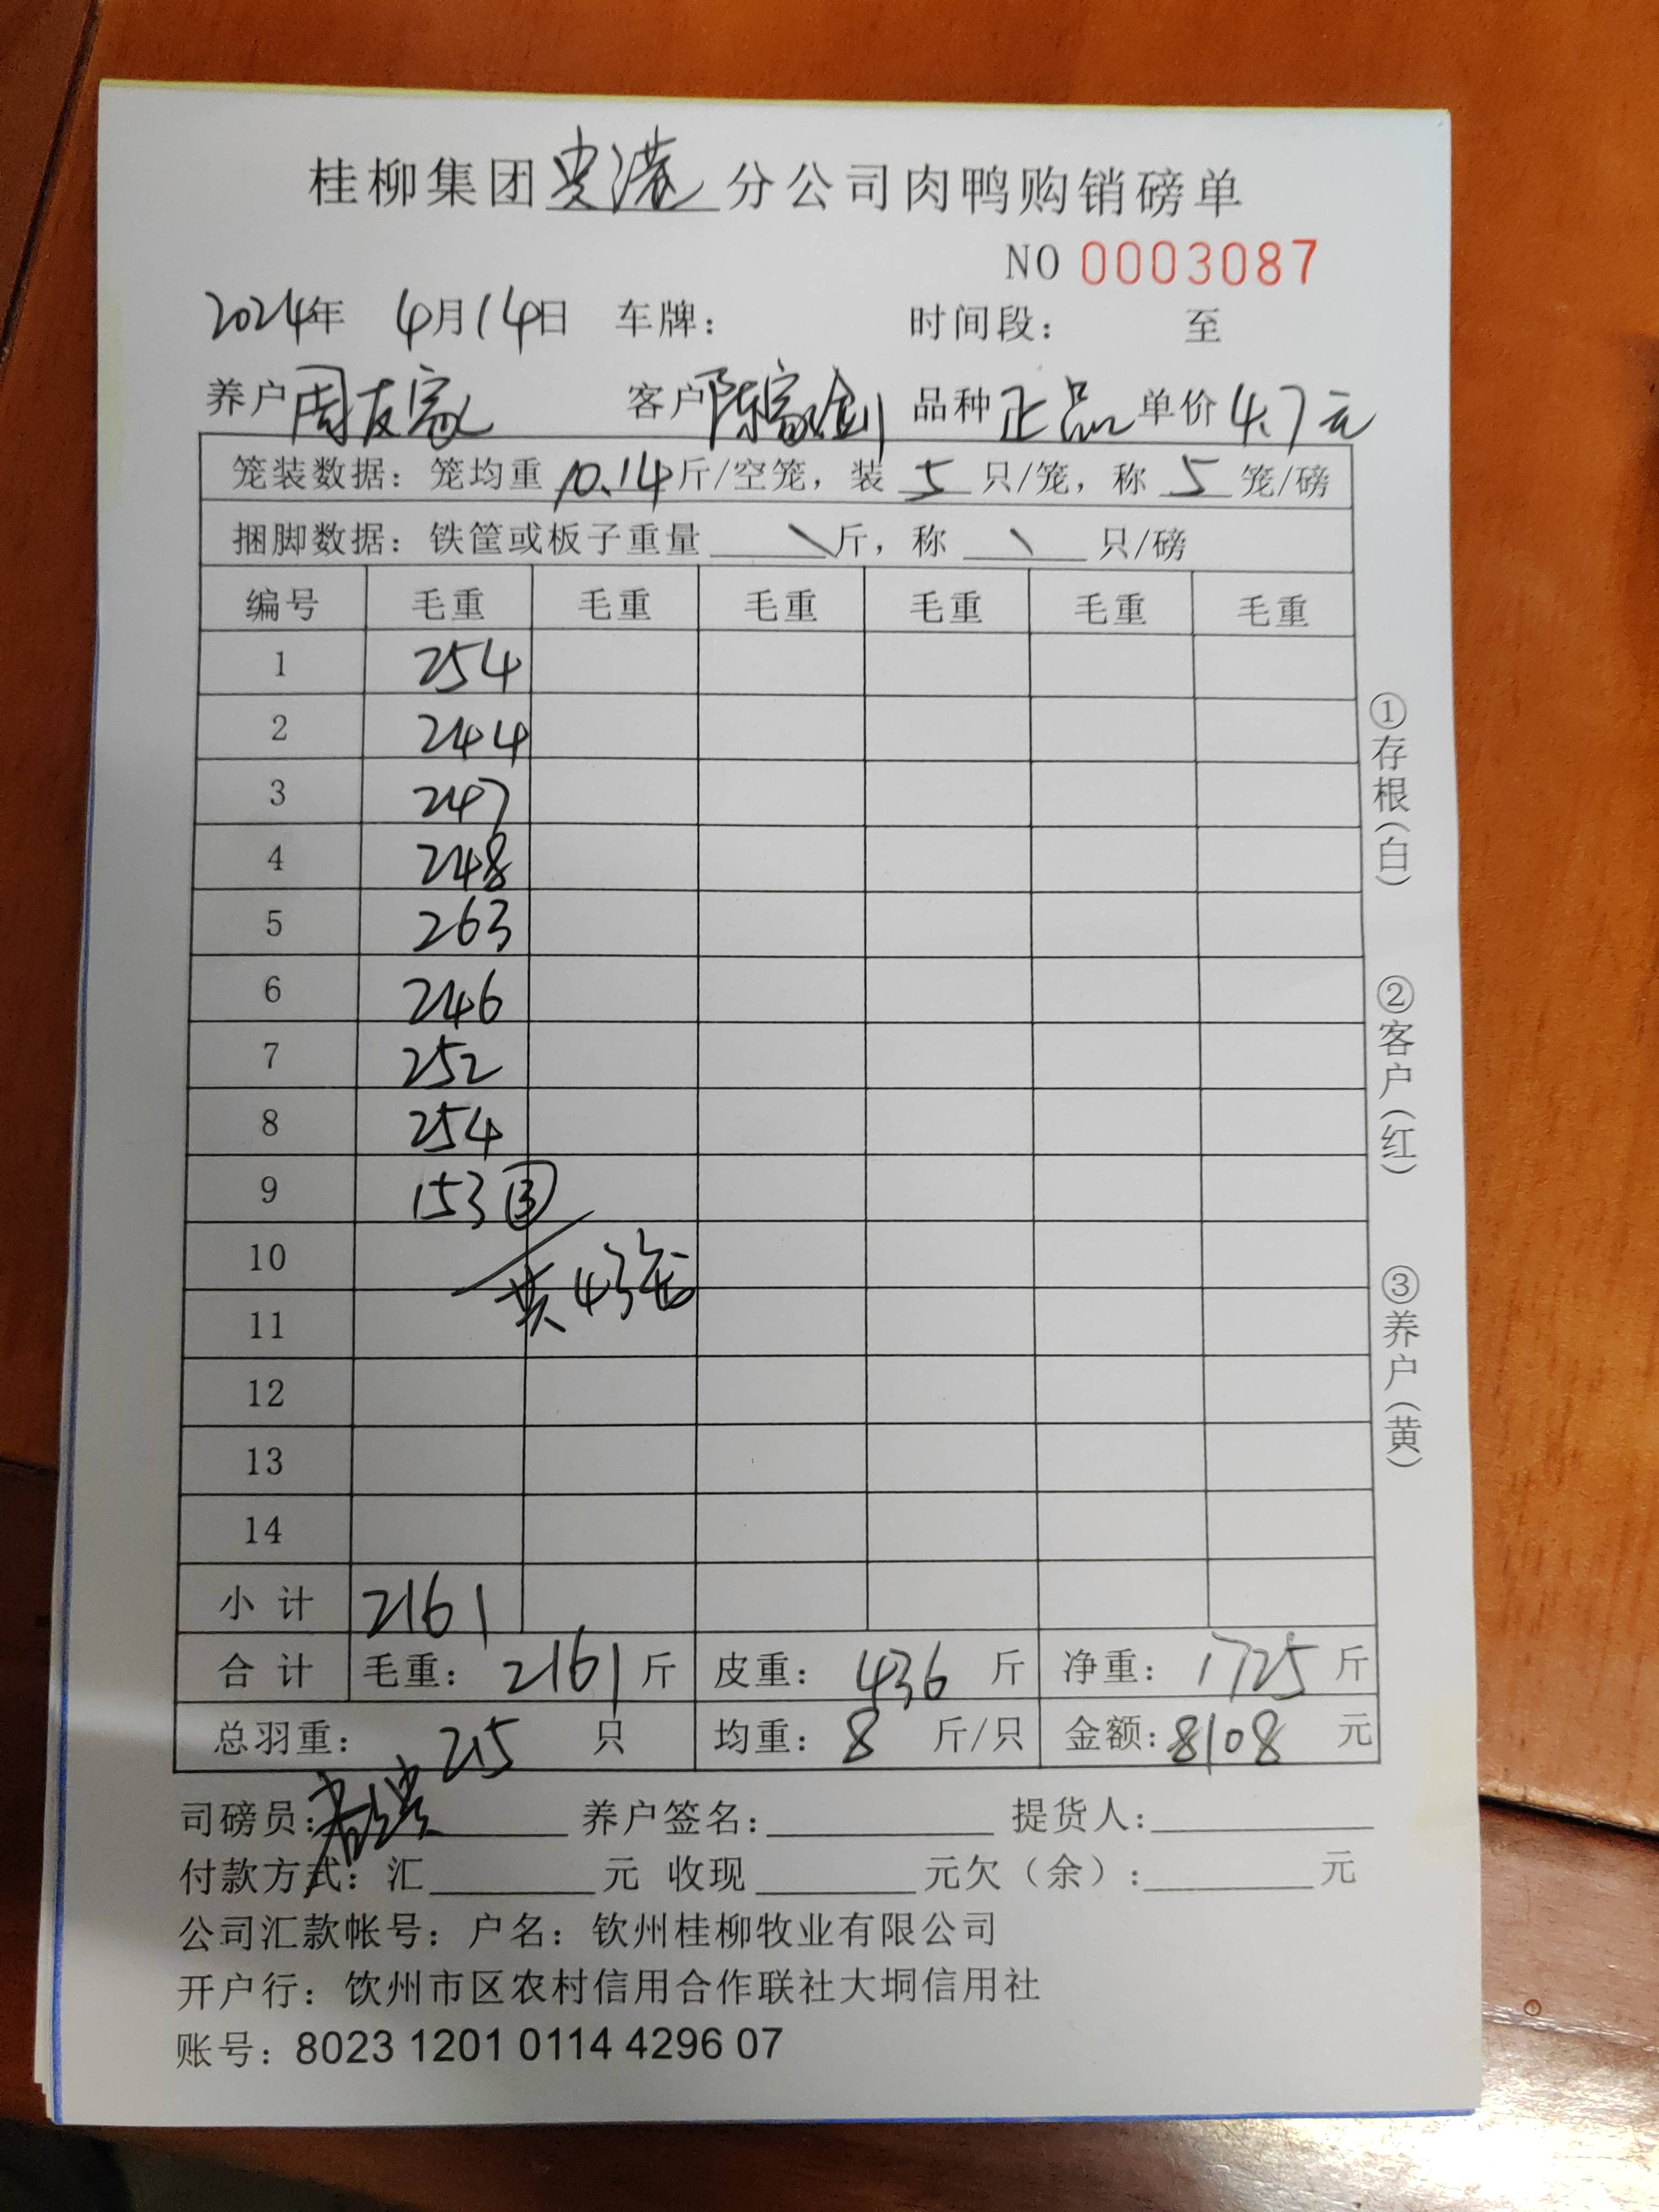 桂柳集团贵港分公司肉鸭购销磅单
NO 0003087
2024年 4月14日 车牌： 时间段： 至
养户周友家 客户陈家剑 品种正品 单价4.7元
笼装数据：笼均重10.14斤/空笼，装5只/笼，称5笼/磅
捆脚数据：铁筐或板子重量＼斤，称＼只/磅
编号 毛重 毛重 毛重 毛重 毛重 毛重
1 254
2 244
3 247
4 248
5 263
6 246
7 252
8 254
9 153 ③
10
共43笼
11
12
13
14
小计 2161
合计 毛重：2161斤 皮重：436斤 净重：1725斤
总羽重：215只 均重：8斤/只 金额：8108元
司磅员： 养户签名： 提货人：
付款方式：汇 元 收现 元欠（余）： 元
公司汇款帐号：户名：钦州桂柳牧业有限公司
开户行：饮州市区农村信用合作联社大垌信用社
账号：8023 1201 0114 4296 07
①存根（白）
②客户（红）
③养户（黄）